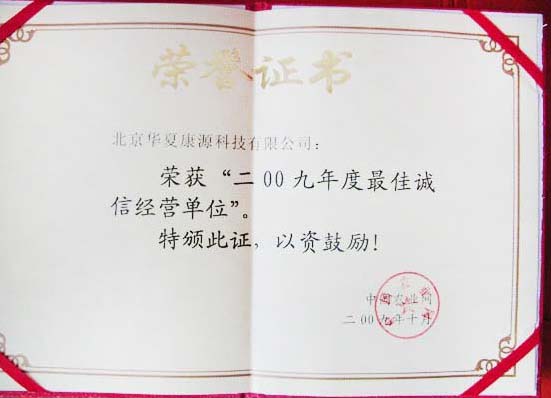 荣誉证书
北京华夏康源科技有限公司：
荣获“二00九年度最佳诚
信经营单位”。
特颁此证，以资鼓励！
中国农业网
二00九年十月